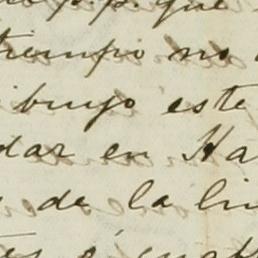 p. p. que
tiempo no
ibuyo este
dar en Ha
de la lin